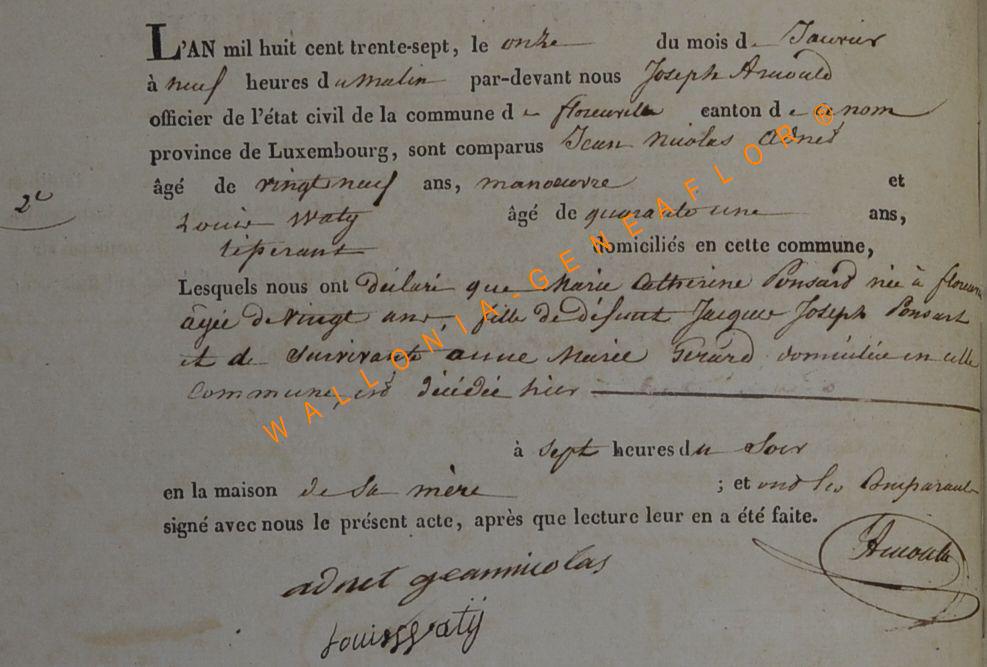 L'AN mil huit cent trente-sept, le onze du mois de Janvier
à neuf heures du Matin par-devant nous Joseph Arnould
officier de l'état civil de la commune de florenville canton de ce nom
province de Luxembourg, sont comparus Jean Nicolas Adnet
âgé de vingt neuf ans, manoeuvre et
2e
Louis Waty âgé de quarante une ans,
domiciliés en cette commune,
Lesquels nous ont déclaré que Marie Catherine Ponsard née à florenville
âgée de vingt ans, fille de défunt Jacques Joseph Ponsart
et de Survivante anne Marie Gerard domiciliée en cette
commune, est décédée hier
à sept heures du Soir
en la maison de Sa mère ; et ont les Comparants
signé avec nous le présent acte, après que lecture leur en a été faite.
Arnould
adnet geannicolas
Louis Watÿ
WALLONIA-GENEAFLOB®